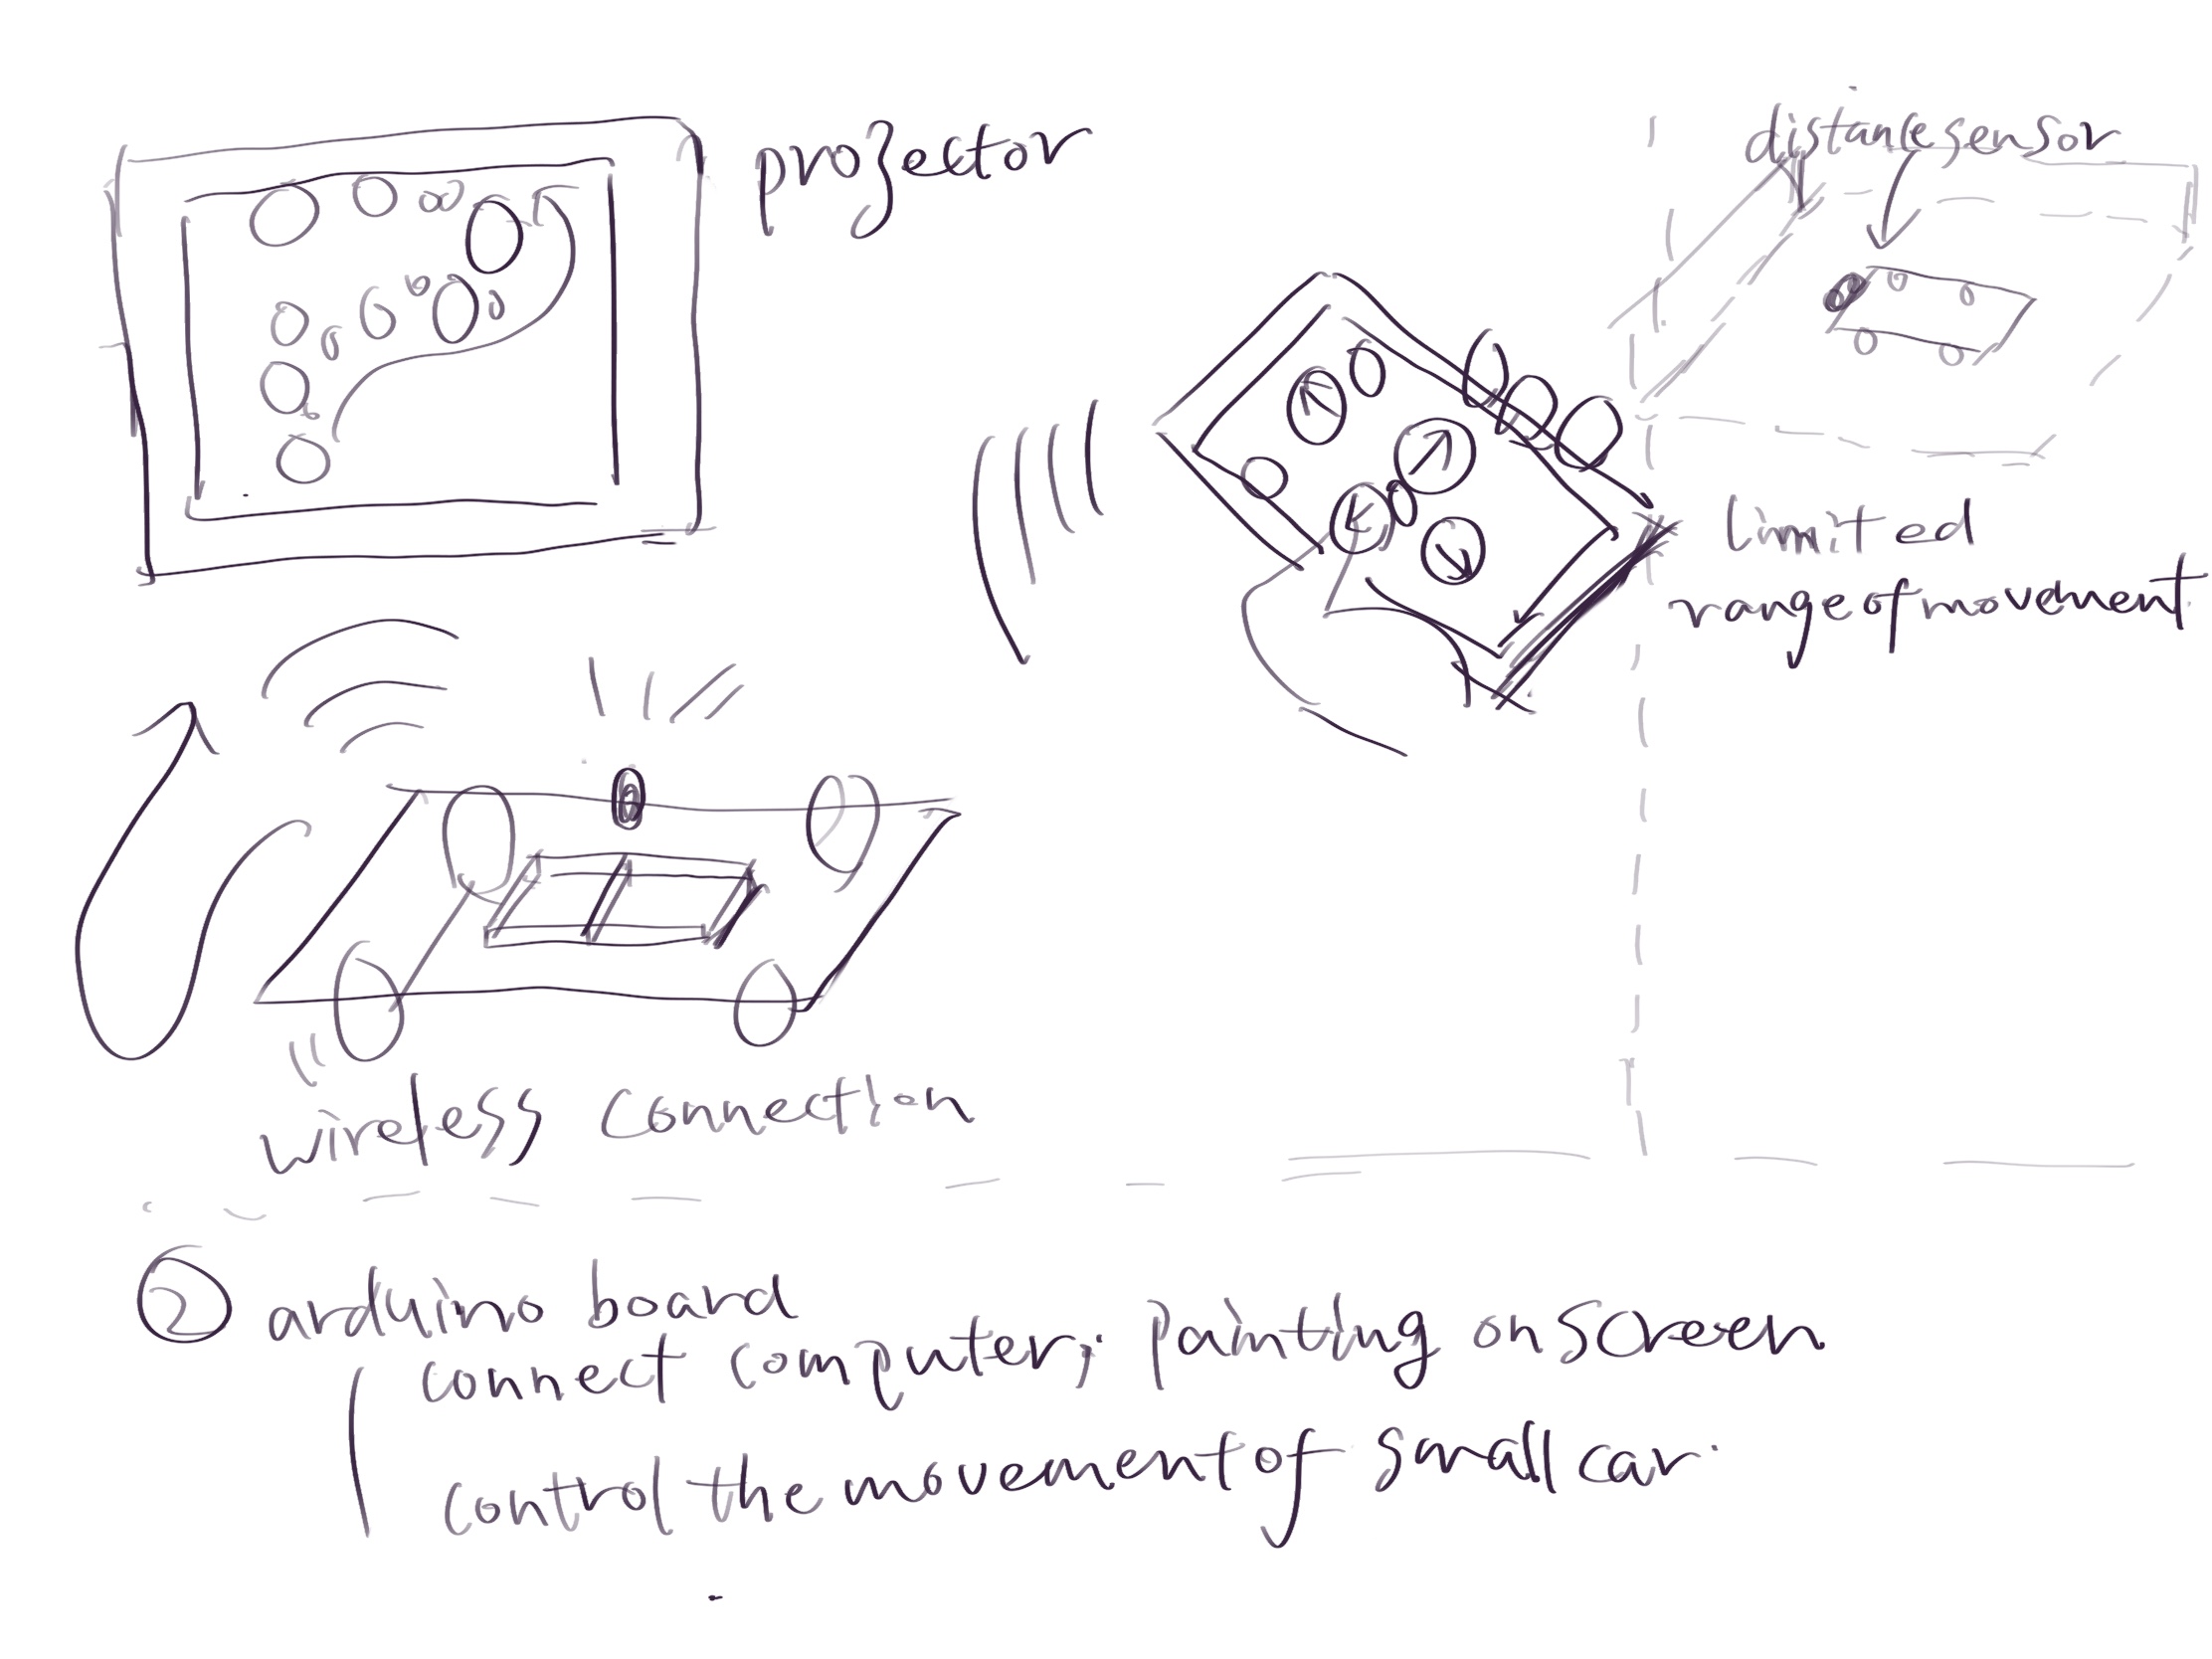 projector
distance sensor
limited
range of movement.
wireless connection
② arduino board
connect computer; painting on screen.
control the movement of small car.